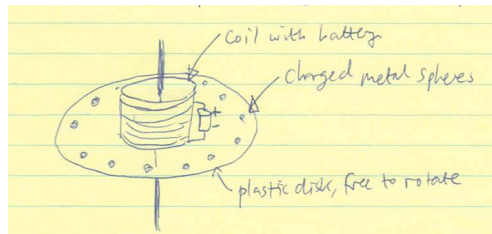 coil with battery
charged metal spheres
+
plastic disk, free to rotate